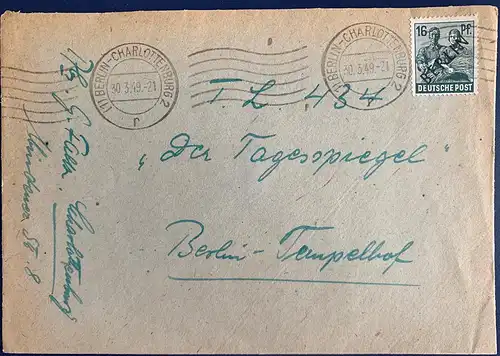 (1) BERLIN-CHARLOTTENBURG 2
30.3.49.-21
r
(1) BERLIN-CHARLOTTENBURG 2
30.3.49.-21
16 Pf.
BERLIN
DEUTSCHE POST
TL 484
"Der Tagesspiegel"
Berlin-Tempelhof
Charlottenburg